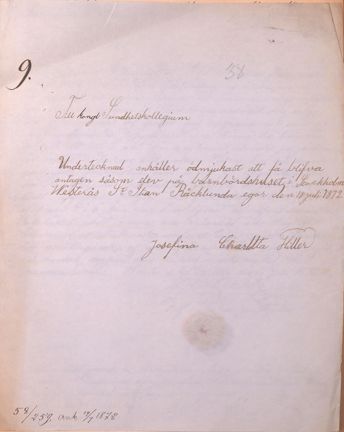 9.
38
Till Kongl Sundhetskollegium
Undertecknad anhåller ödmjukast att få blifva
antagen såsom elev på barnbördshuset i Stockholm
Westerås St Ilian Räcklunda egor den 10 juli 1872
Josefina Charlltta Hiller
58/259. ank 12/7 1872